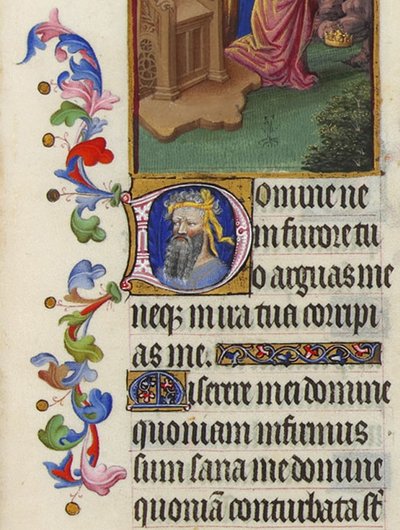 Domine ne
in furore tu
o arguas me
neqȝ in ira tua corripi
as me.
Miserere mei domine
quoniam infirmus
sum sana me domine
quoniā conturbata sūt